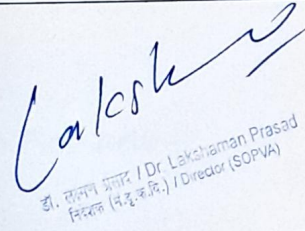 Laksh
डॉ. लक्ष्मण प्रसाद / Dr. Lakshaman Prasad
निदेशक (मं.दृ.क.वि.) / Director (SOPVA)